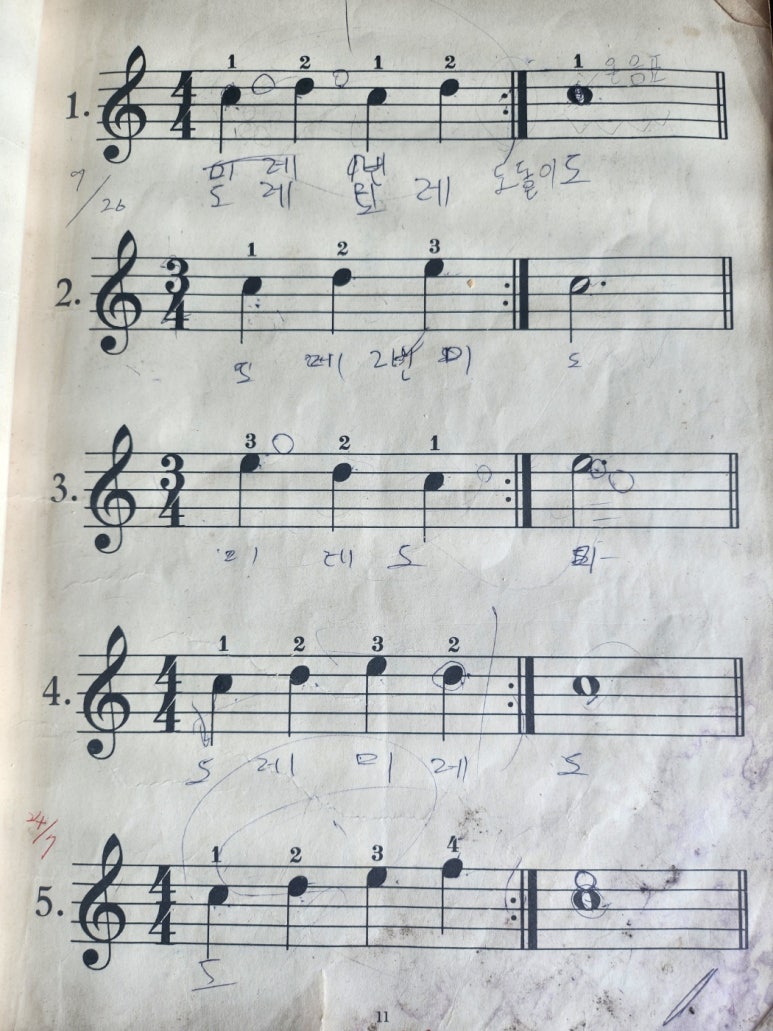 1 2 1 2 1
1. 4/4 온음표
미 레 1번
도 레 도 레 도돌이도
9/26
1 2 3
2. 3/4
도 레 2번 미 도
3 2 1
3. 3/4
미 레 도 미
1 2 3 2
4. 4/4
도 레 미 레 도
24/7
1 2 3 4
5. 4/4
도
11